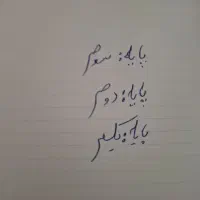 پایهٔ سوم
پایهٔ دوم
پایهٔ یکم